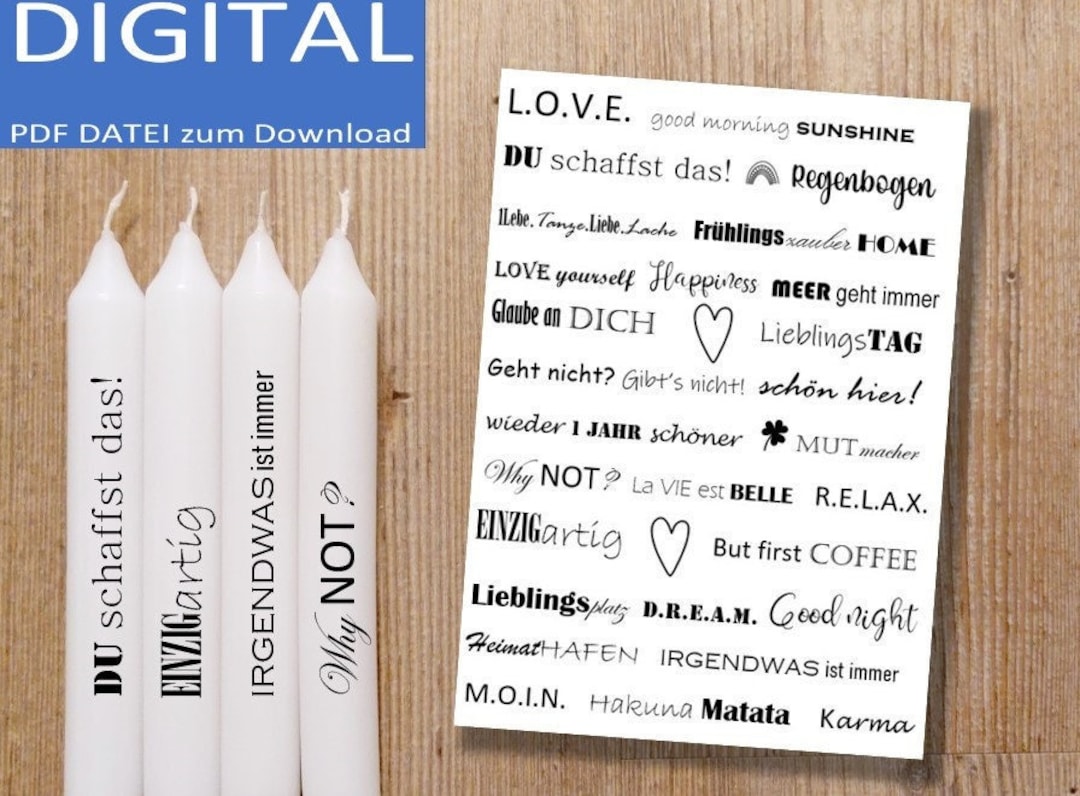 DIGITAL
PDF DATEI zum Download
L.O.V.E. good morning SUNSHINE
DU schaffst das! Regenbogen
1Lebe.Tanze.Liebe.Lache Frühlingszauber HOME
LOVE yourself Happiness MEER geht immer
Glaube an DICH LieblingsTAG
Geht nicht? Gibt's nicht! schön hier!
wieder 1 JAHR schöner MUTmacher
Why NOT? La VIE est BELLE R.E.L.A.X.
EINZIGartig But first COFFEE
Lieblingsplatz D.R.E.A.M. Good night
HeimatHAFEN IRGENDWAS ist immer
M.O.I.N. Hakuna Matata Karma
DU schaffst das!
EINZIGartig
IRGENDWAS ist immer
Why NOT?